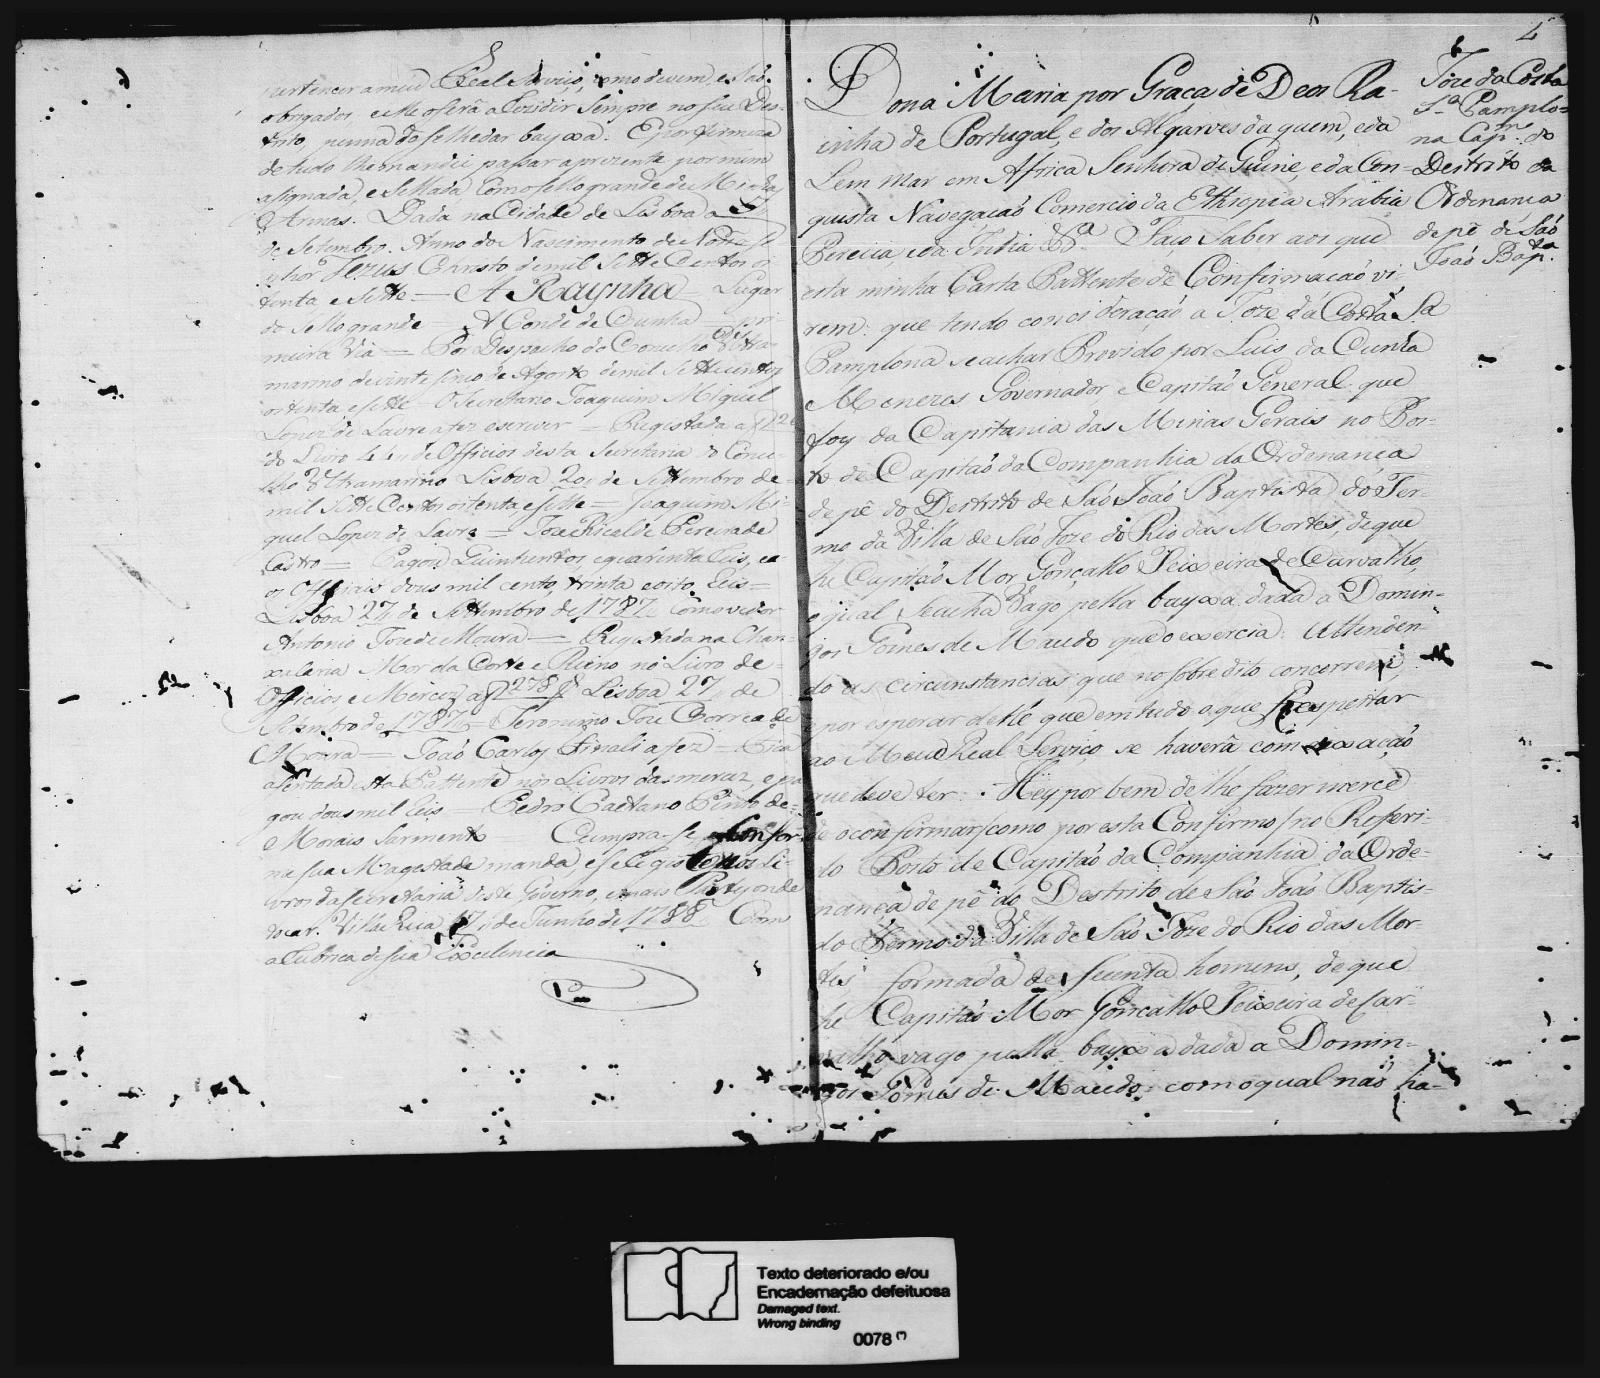 pertencer a meu Real Serviço, como devem, e Saõ
obrigados, e elle oserâ a Rezidir Sempre no seu Des-
trito, penna de se lhe dar bayxa. E por firmeza
de tudo lhe mandei passar a prezente por mim
asignada, e Sellada Com o sello grande de Minhas
Armas. Dada na Cidade de Lisboa a 5
de Setembro. Anno do Nascimento de Nosso Se
nhor Jezus Christo de mil Sette Centos oi
tenta e Sette — A Raynha — Lugar
do Sello grande — A Conde de Cunha — pri-
meira Via — Por Despacho do Concelho Ultra-
marino de vinte sinco de Agosto de mil Settecentos
oitenta e sette — O Secretario Joaquim Miguel
Lopez de Lavre a fez escrever — Registada a
do Livro de Officios desta Secretaria do Conce-
lho Ultramarino Lisboa 20, de Settembro de-
mil Sette Centos oitenta e sette = Joaquim Mi-
guel Lopez de Lavre = Joze Ricalde Pereira de
Castro = Pagou Quinhentos, e quarenta Reis, e a-
os Officiais dous mil cento, trinta e oito, Reis =
Lisboa 27 de Settembro de 1787 Como vedor
Antonio Joze de Moura — Registada na Chan-
xalaria Mor da Corte e Reino no Livro de-
Officios, e Mercez a f 278 f Lisboa 27, de
Setembro de 1787 = Jeronimo Joze Correa de
Moura — Joaõ Carlos Finali a fez — Fica
asentada esta Pattente nos Livros das mercez, e pa
gou dous mil Reis — Pedro Caetano Pinto de-
Morais Sarmento — Cumpra-se, Confor-
na sua Magestade manda, e se Registe nos Li-
vros da Secretaria deste Governo, e mais Partes onde
tocar. Villa Rica 17, de Junho de 1788 Com
a Rubrica de sua Excelencia
4
Joze da Costa
Sª Pamplo=
na Capm. do
Destrito da
Ordenança
de pê de Saõ
Joaõ Bapta.
Dona Maria por Graca de Deos Ra-
inha de Portugal, e dos Algarves da quem, e da
Lem mar em Affrica Senhora de Guine, e da Con-
quista Navegaçaõ Comercio da Ethiopia Arabia
Percia, e da India &ª Faço Saber aos que
esta minha Carta Pattente de Confirmaçaõ vi-
rem: que tendo concideraçaõ a Joze da Costa Sa
Pamplona se achar Provido por Luis da Cunha
Menezes Governador e Capitaõ General que
foy da Capitania das Minas Gerais no Pos-
to de Capitaõ da Companhia da Ordenança
de pê do Destrito de Saõ Joaõ Baptista do Ter-
mo da Villa de Saõ Joze do Rio das Mortes, de que
he Capitaõ Mor Gonçallo Teixeira de Carvalho,
o qual se acha Vago pella bayxa dada a Domin-
gos Gomes de Macedo que o exercia: Attenden-
do as circunstancias que no sobredito concorrem,
e por esperar delle que em tudo o que Respeitar
ao Meu Real Serviço se haverâ com exaçaõ
que deve ter. Hey por bem de lhe fazer mercê
de o confirmar (como por esta Confirmo) no Referi-
do Posto de Capitaõ da Companhia da Orde-
nança de pê do Destrito de Saõ Joaõ Baptis-
do Termo da Villa de Saõ Joze do Rio das Mor-
tes formada de secenta homens, de que
he Capitaõ Mor Gonçallo Teixeira de Car-
valho, vago pella bayxa dada a Domin-
gos Gomes de Macedo: com o qual naõ ha-
Texto deteriorado e/ou
Encadernação defeituosa
Damaged text.
Wrong binding
0078 (*)